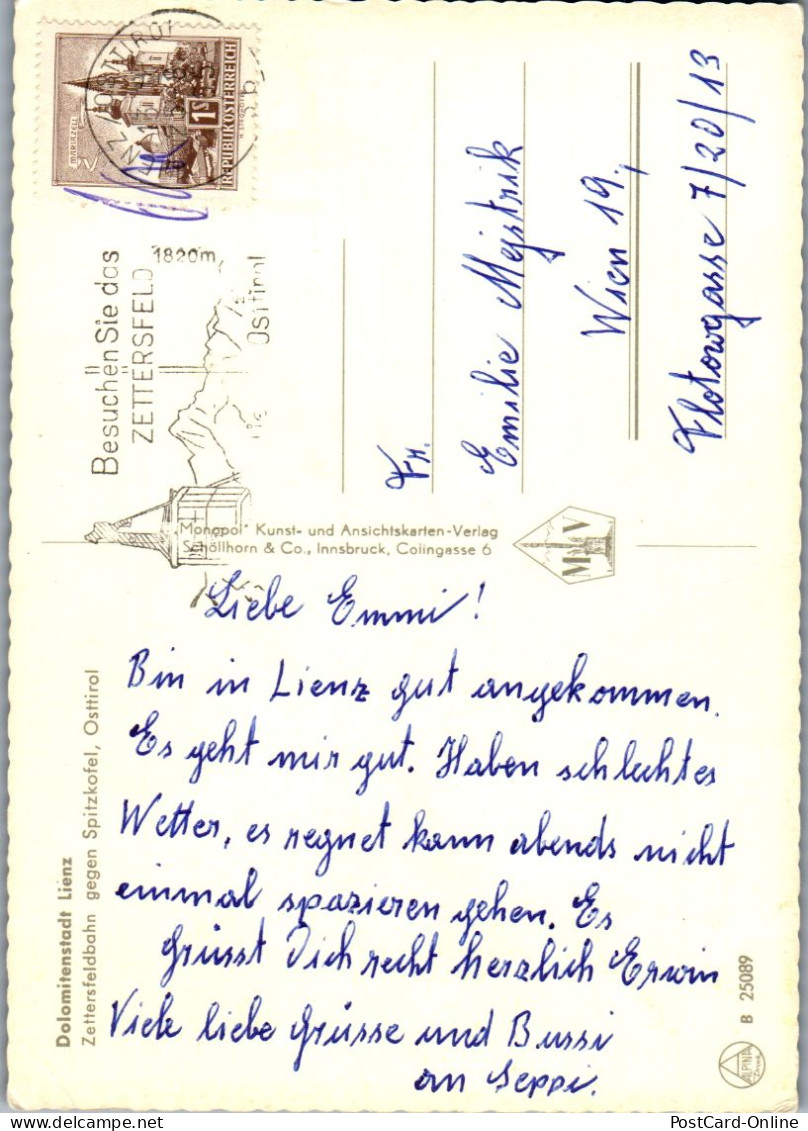 LIENZ / OSTTIROL
MARIAZELL
1S
REPUBLIK ÖSTERREICH
Besuchen Sie das
ZETTERSFELD
1820m
Osttirol
Fr.
Emilie Mejstrik
Wien 19.,
Flotowgasse 7/20/13
"Monopol" Kunst- und Ansichtskarten-Verlag
Schöllhorn & Co., Innsbruck, Colingasse 6
M V
Liebe Emmi!
Bin in Lienz gut angekommen.
Es geht mir gut. Haben schlechtes
Wetter, es regnet kann abends nicht
einmal spazieren gehen. Es
Grüsst Dich recht herzlich Erwin
Viele liebe Grüsse und Bussi
an Seppi.
Dolomitenstadt Lienz
Zettersfeldbahn gegen Spitzkofel, Osttirol
ALPINA
B 25089
PostCard-Online